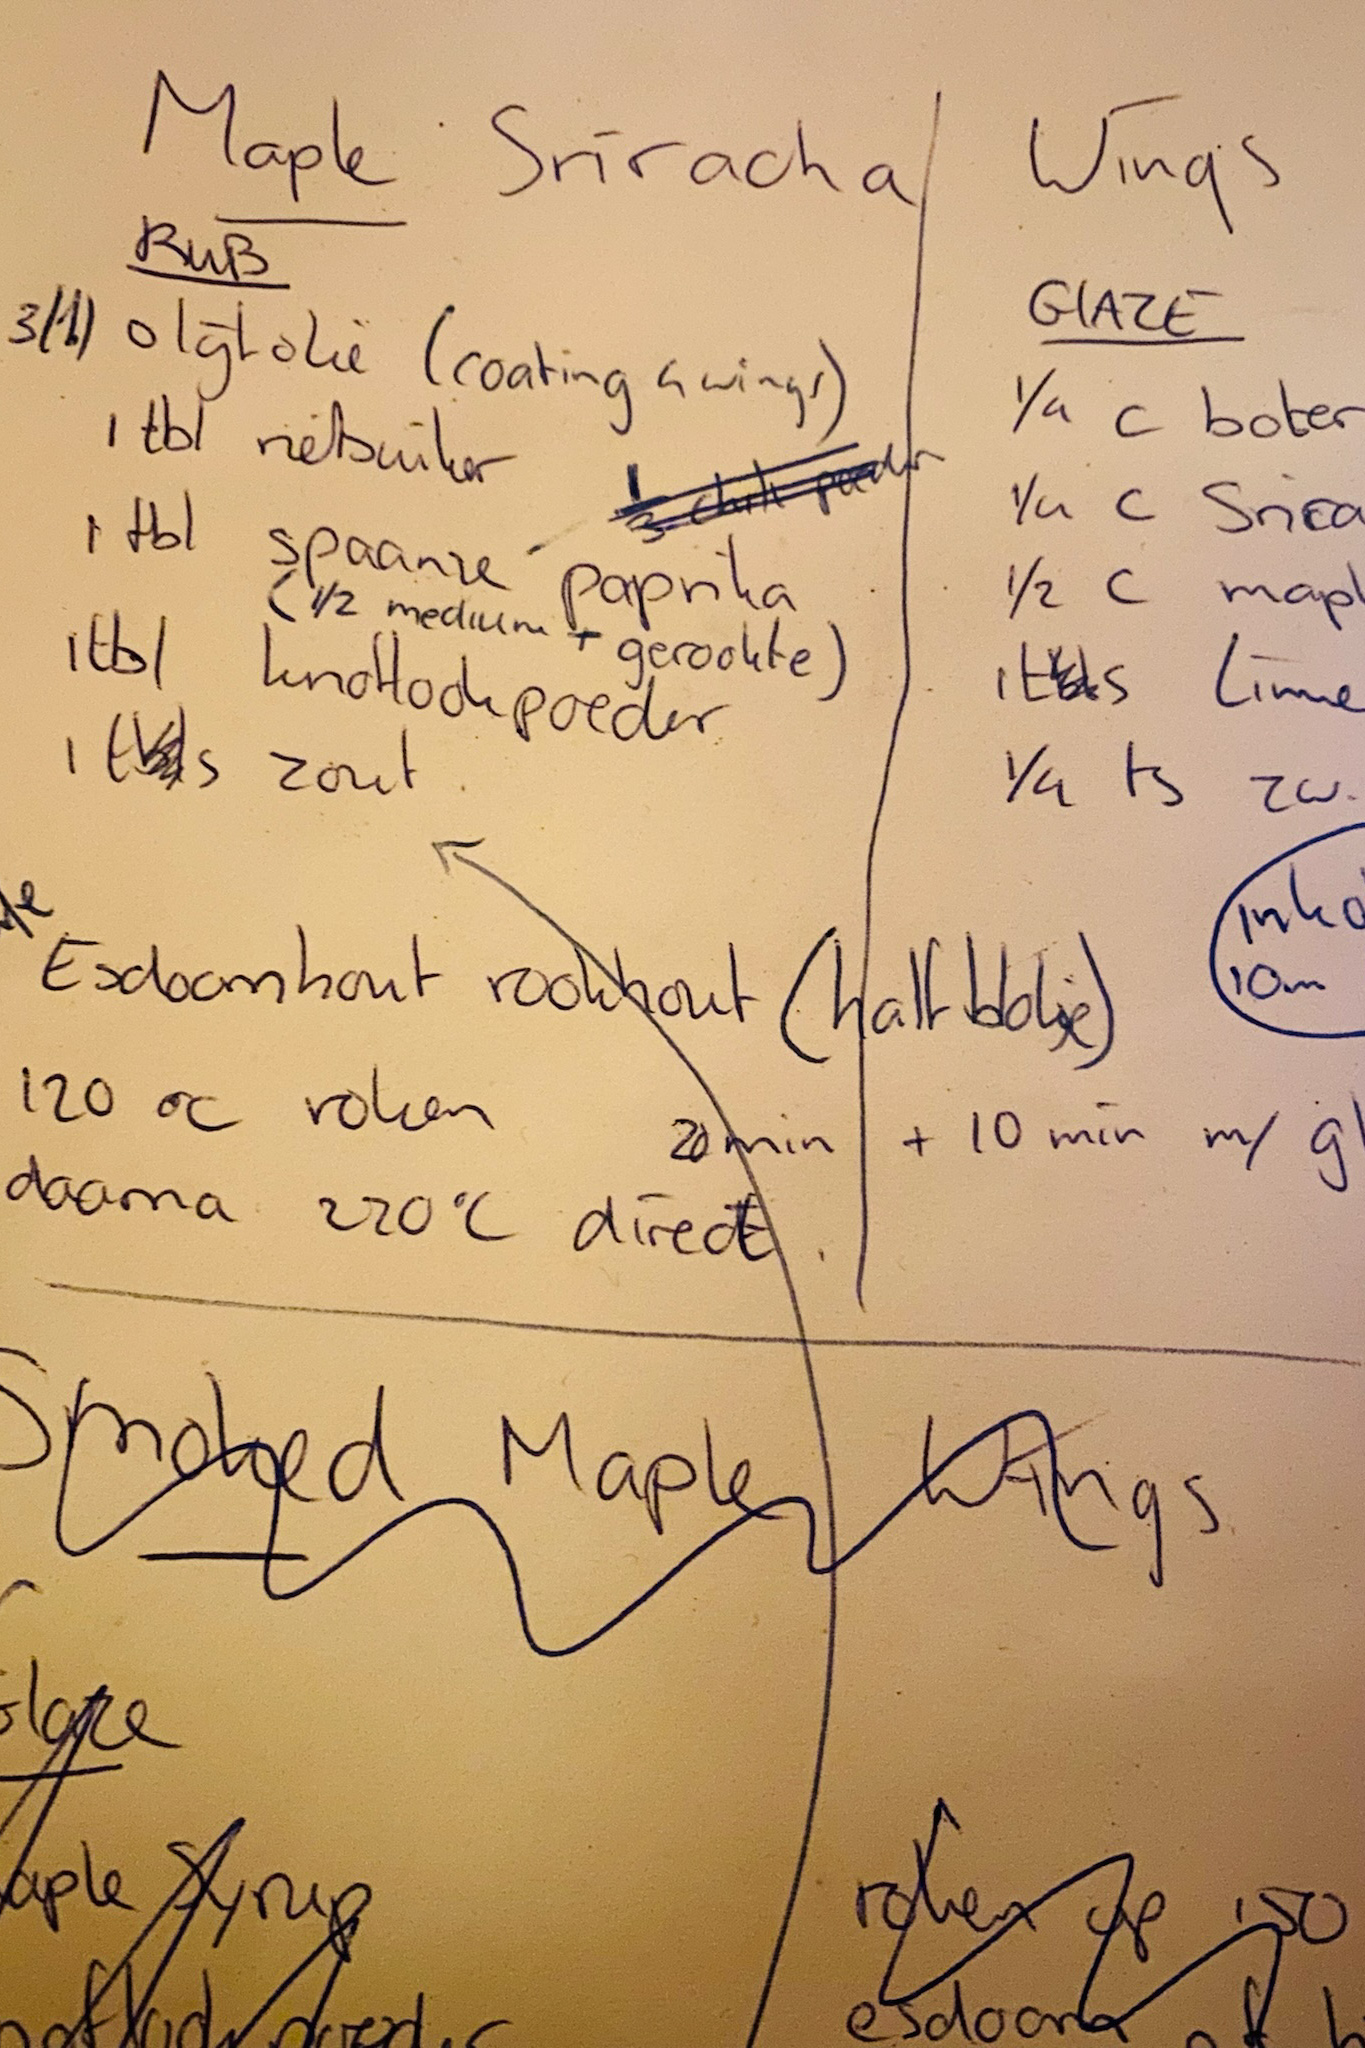 Maple Sriracha Wings
RUB
olijfolie (coating 4 wings)
1 tbl rietsuiker
chili poeder
1 tbl spaanse paprika
(1/2 medium + gerookte)
1 tbl knoflookpoeder
1 ts zout
GLAZE
1/4 c boter
1/4 c Srira
1/2 c mapl
1 ts Lime
1/4 ts zw.
10m
Esdoornhout rookhout (half blokje)
120 °C roken 20 min + 10 min m/ gl
daarna 220°C direct.
Smoked Maple Wings
Glaze
aple Syrup
roken op 150
esdoorn of